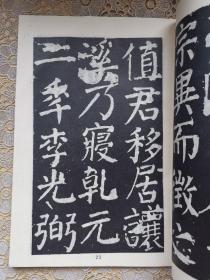 宗異而徵之
值君移居讓
溪乃寢乾元
二年李光弼